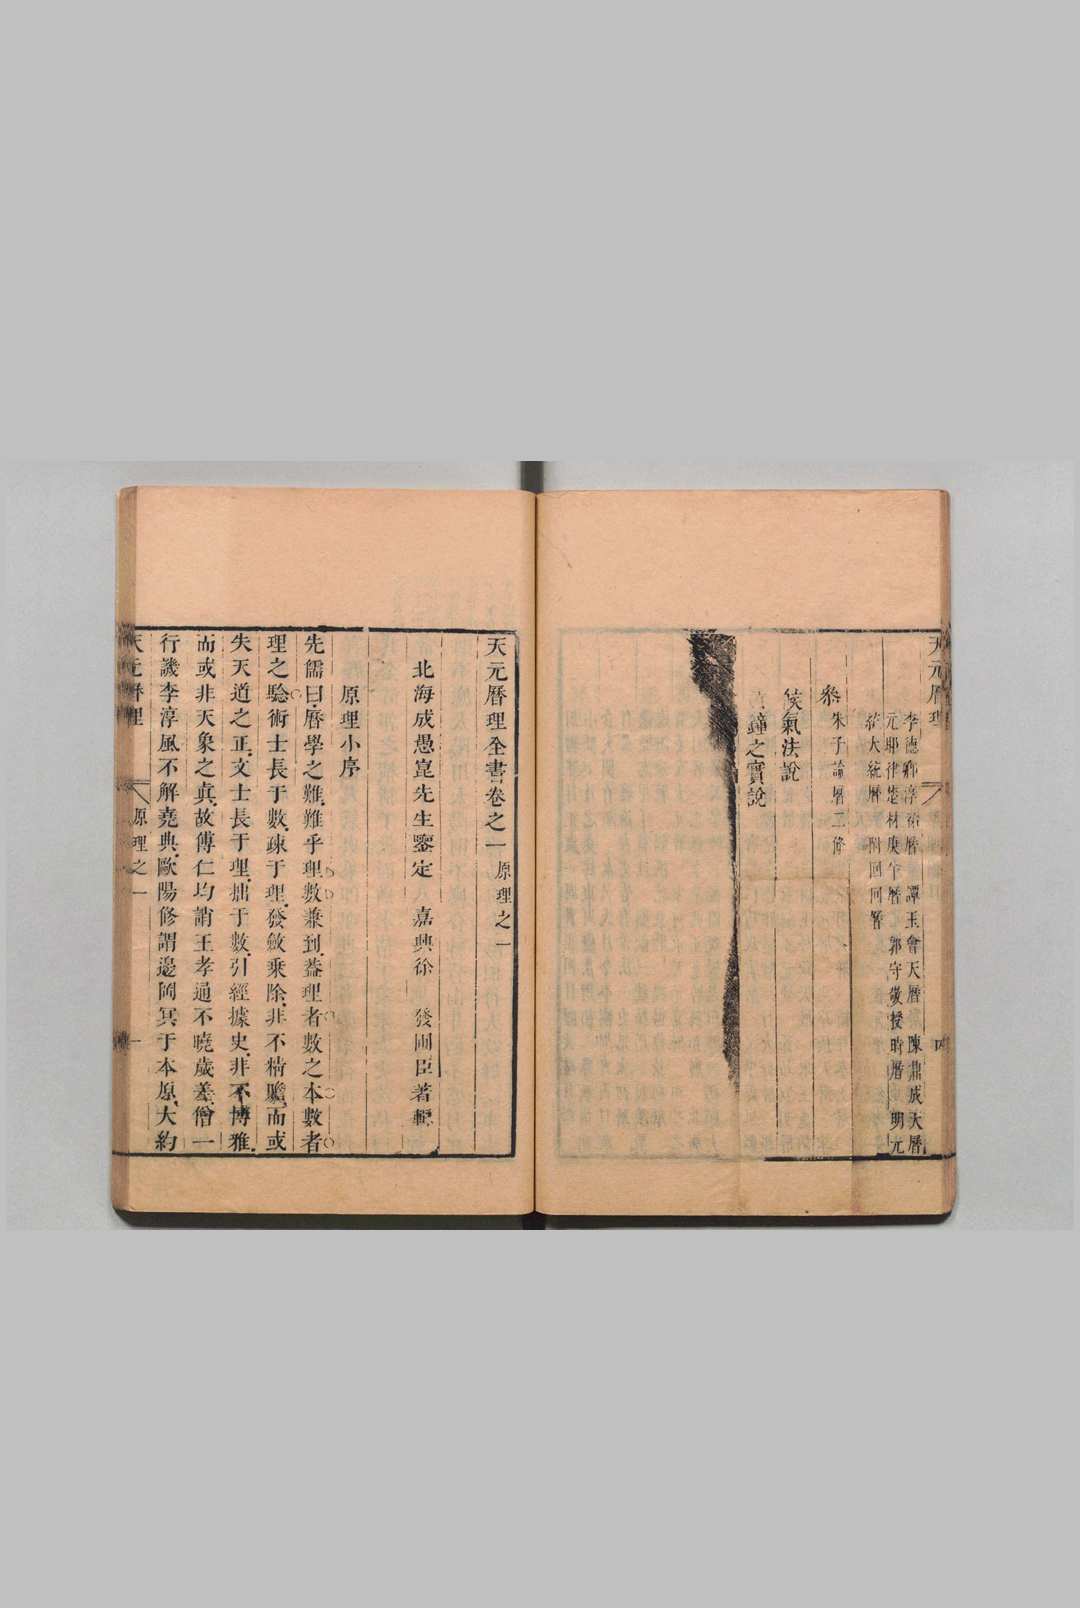 天元曆理
李德卿淳祐曆 譚玉會天曆 陳鼎成天曆
元耶律楚材庚午曆 郭守敬授時曆 明元
統大統曆 附回回曆
朱子論曆二條
叅
候氣法說
黃鐘之實說
天元曆理全書卷之一 原理之一
北海成愚崑先生鑒定 嘉興徐 發圃臣著輯
原理小序
先儒曰曆學之難難乎理數兼到葢理者數之本數者
理之騐術士長于數踈于理發斂乘除非不精贍而或
失天道之正文士長于理拙于數引經據史非不博雅
而或非天象之眞故傅仁均誚王孝通不曉歲差僧一
行譏李淳風不解堯典歐陽修謂邊岡冥于本原大約
天元曆理 原理之一 一